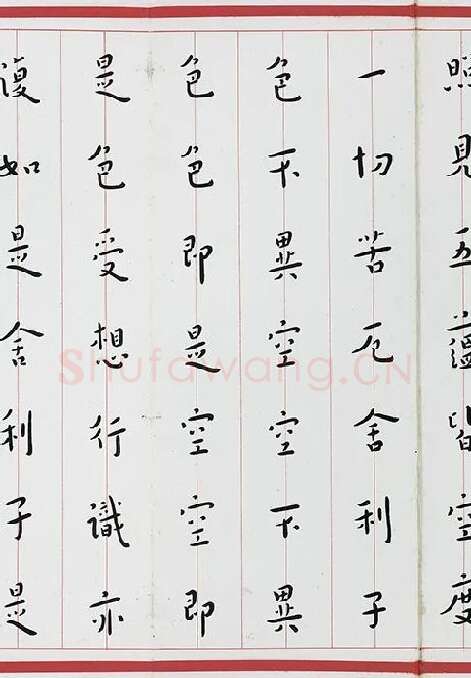 照見五蘊皆空度
一切苦厄舍利子
色不異空空不異
色色即是空空即
是色受想行識亦
復如是舍利子是
Shufawang.CN